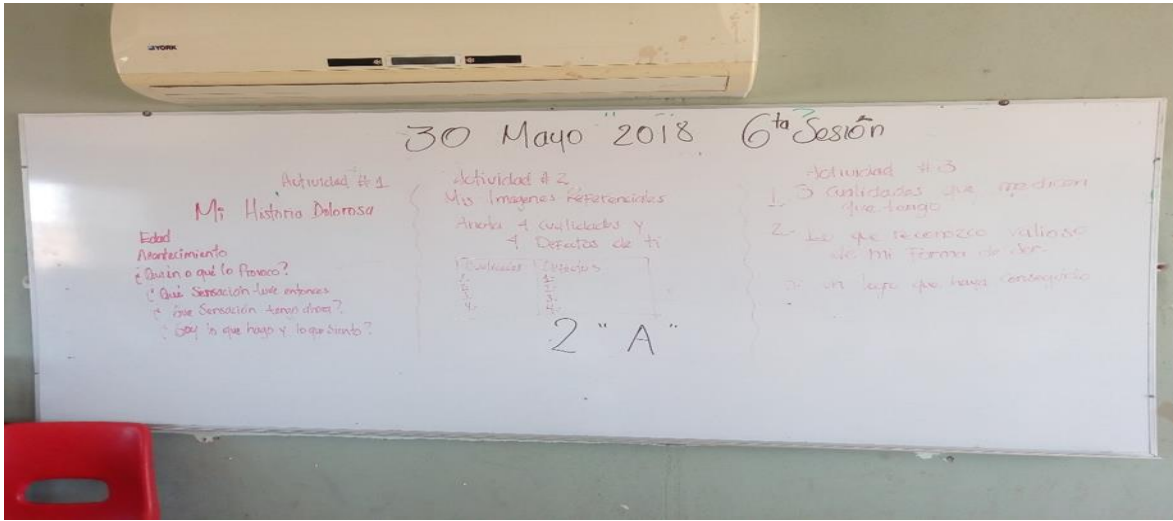 YORK
30 Mayo 2018 6ta Sesión
Actividad #1
Mi Historia Dolorosa
Edad
Acontecimiento
¿Quién o qué lo Provoco?
¿Qué Sensación tuve entonces
¿Que Sensación tengo ahora?
¿Soy lo que hago y lo que siento?
Actividad #2
Mis Imagenes Referenciales
Anota 4 Cualidades y
4 Defectos de ti
Cualidades Defectos
1.-
2.-
3.-
4.-
2 "A"
Actividad #3
1. 3 Cualidades que me dicen
que tengo
2.- Lo que reconozco valioso
de Mi Forma de
3.- un logro que haya conseguido